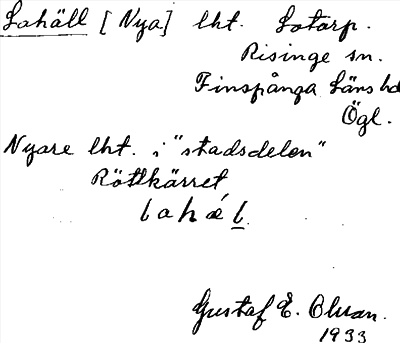 Lahäll [Nya] lht. Lotorp.
Risinge sn.
Finspånga läns hd
Ögl.
Nyare lht. i "stadsdelen"
Röttkärret
lahǽl.
Gustaf E. Olsson.
1933